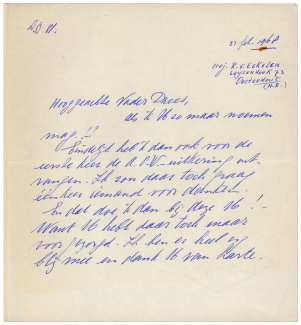 11 feb. 1968
Mej. R. v. Eekelen
Leysenhoek 73
Oosterhout
(N.B.)
Hooggeachte Vader Drees,
als 'k U zo maar noemen
mag!?
Eindelijk heb 'k dan ook voor de
eerste keer de A.O.W-uitkering ont-
vangen. Ik zou daar toch graag
één keer iemand voor danken.
En dat doe 'k dan bij deze U!-
Want U hebt daar toch maar
voor gezorgd. Ik ben er heel erg
blij mee en dank U van harte.